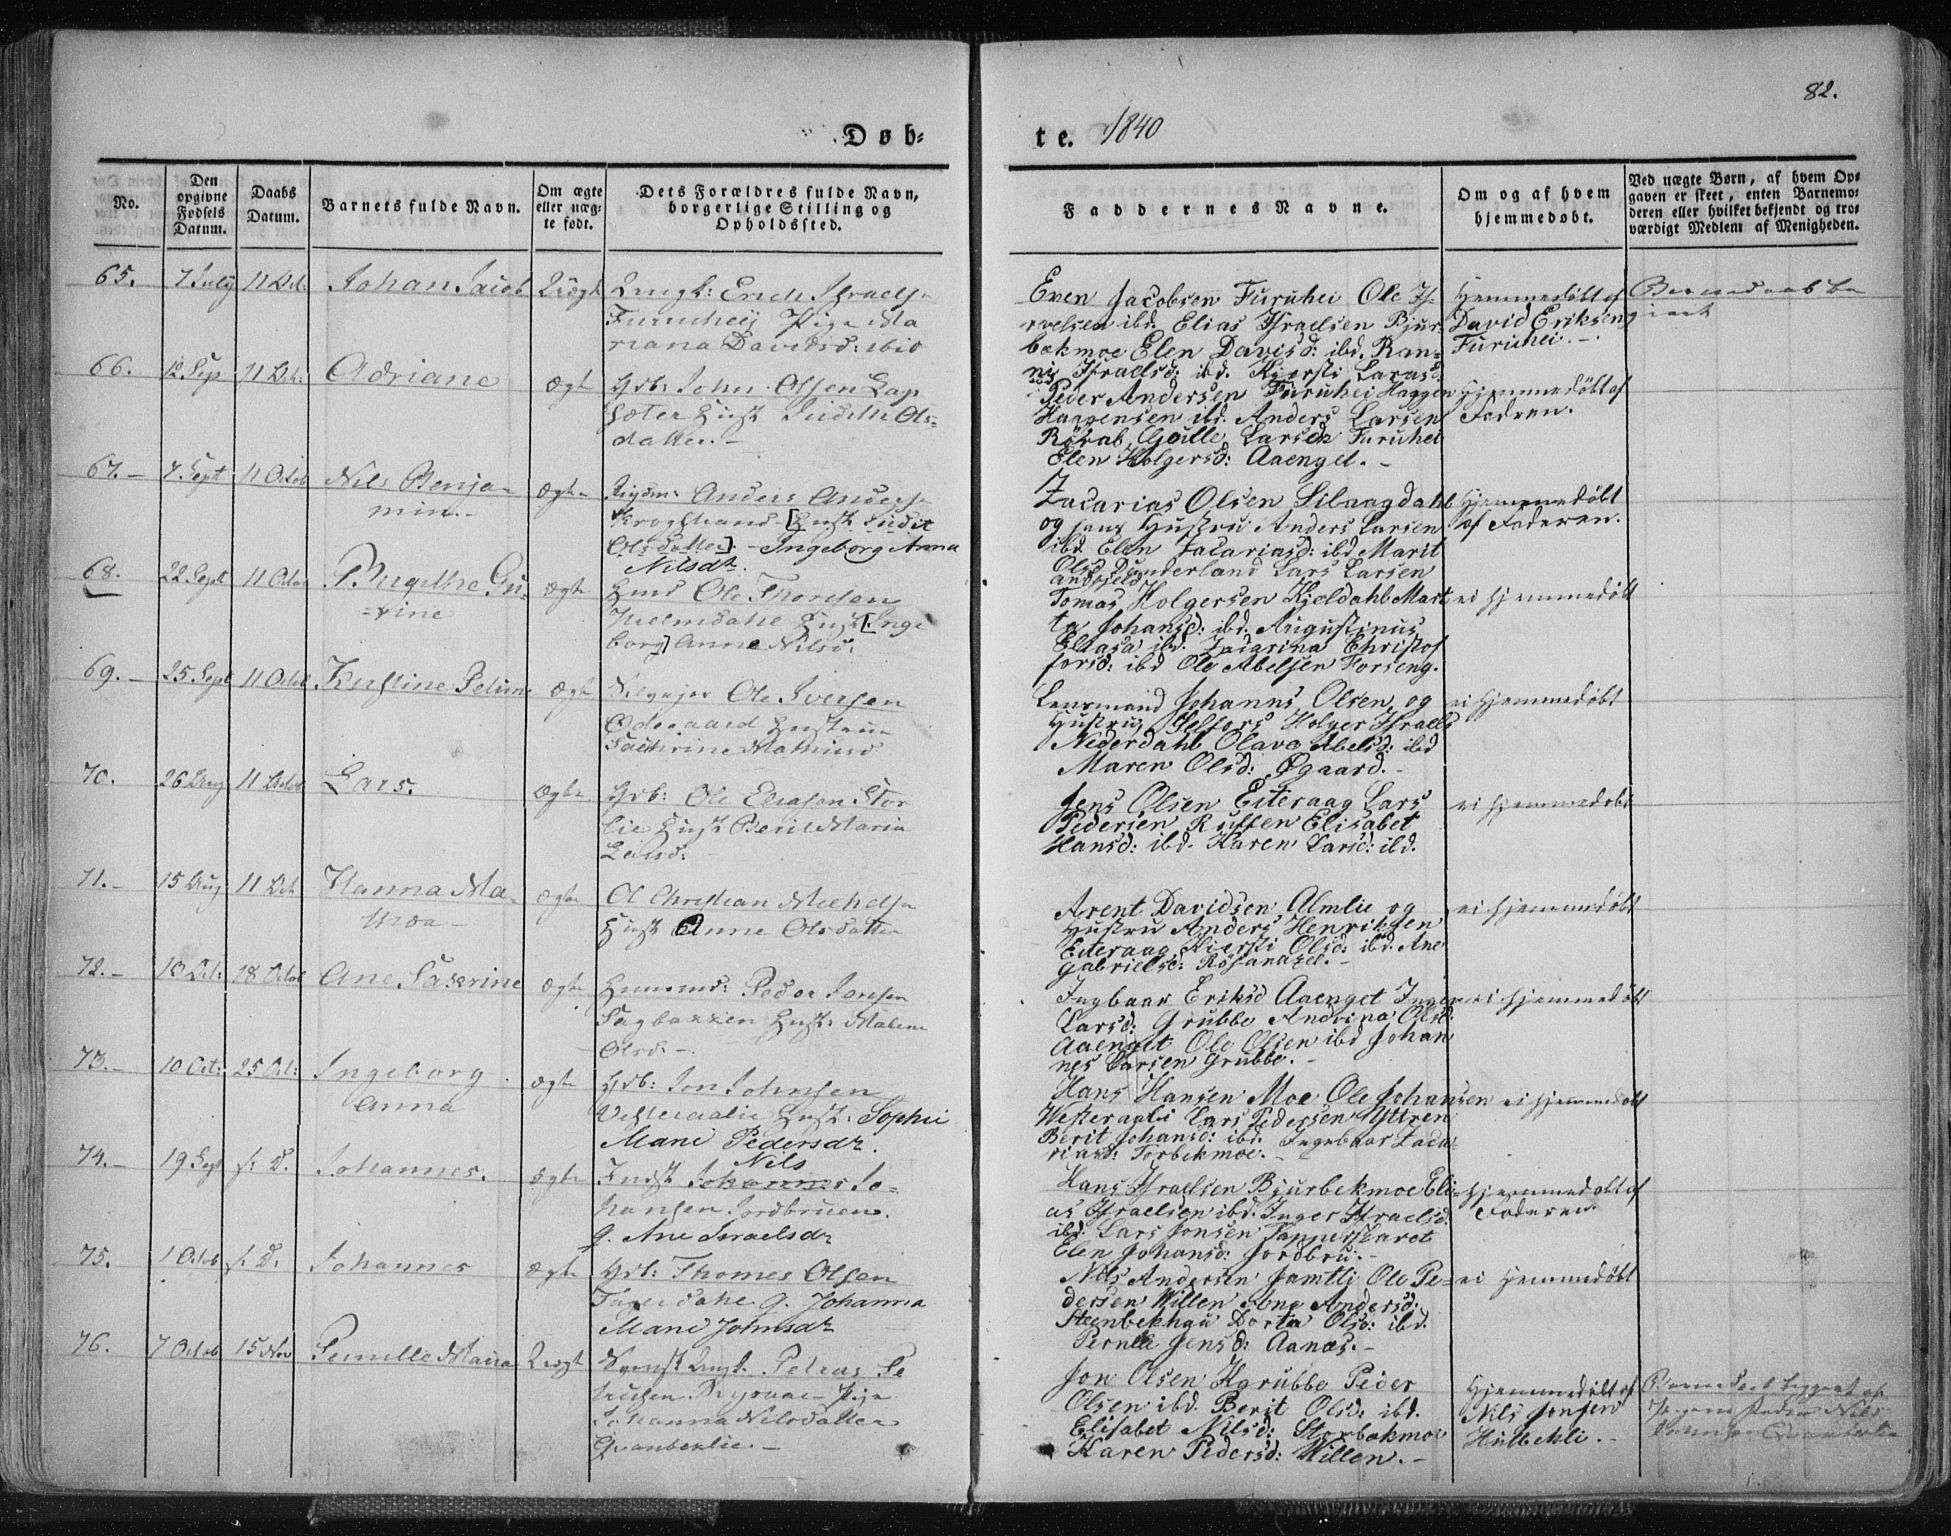 82.
Døb-
te. 1840
No.
Den
opgivne
Fødsels
Datum.
Daabs
Datum.
Barnets fulde Navn.
Om ægte
eller uæg-
te født.
Dets Forældres fulde Navn,
borgerlige Stilling og
Opholdssted.
Faddernes Navne.
Om og af hvem
hjemmedøbt.
Ved uægte Børn, af hvem Op-
gaven er skeet, enten Barnemo-
deren eller hvilket bekjendt og tro-
værdigt Medlem af Menigheden.
65. 7 July 11 Oct: Johan Jacob Uægt
Ungk: Erich Israels
Furuheij Pige Ma
riana Davidsd: ibid
Even Jacobsen Furuhei Ole Is-
raelsen ibd. Elias Israelsen Bjur
bækmoe Elen Davisd: ibd. Ran=
nis Israelsd: ibd. Kjersti Larsd.
Hjemmedøbt af
David Eriksen
Furuhei. -
66. 12 Sep 11 Oct: Adriane ægt
Grb: John Olsen Lap
sæter Hust Judith Ols=
datter. -
Peder Andersen Furuhei Haggen
Haggensen ibd. Anders Larsen
Røsaas Larsen Furuhei
Elen Holgersd: Aaenget. -
Hjemmedøbt af
Fadren.
67. - 7 Sept 11 Octob Nils Benja=
min. - ægte
Rydm: Anders Anders
Krogstrand [Hust Judit
Olsdatter]. - Ingeborg Anna
Nilsdr.
Zacarias Olsen Silaagdahl
og hans Hustru Anders Larsen
ibd Elen Zacariasd: ibd Marit
Olsd Dunderland Lars Larsen
andfjeld
Hjemmedøbt
af Faderen.
68. 22 Sept 11 Octob Birgithe Gu=
=rine ægte
Huusd Ole Thoresen
Hielmdahl Hust [Inge
borg] Anne Nilsd.
Tomas Holgersen Kjeldahl Mart
ta Johansd: ibd. Augustinus
Eliasa ibd. Zacarina Christof
forsd: ibd Ole Abelsen Forseng.
ei hjemmedøbt
69. - 25 Sept 11 Octob Kirstine Peline ægt
Selvejer Ole Iversen
Ødegaard Hustrue
Cathrine Mathiasd
Lensmand Johannes Olsen og
Hustru, Selfors Holger Israels
Nederdahl Olava Abelsd: ibd
Maren Olsd: Øgaard. -
ei hjemmedøbt
70. 26 Aug 11 Octob Lars. ægte
Grb: Ole Eliasen Stor
lie Hust Beret Maria
Larsd:
Jens Olsen Eiteraag Lars
Pedersen Ruffen Elisabet
Hansd: ibd. Karen Larsd: ibd.
ei hjemmedøbt
71. - 15 Aug 11 Oct Hanna Ma=
thea - ægte
Ol Christian Michels
Hust Anne Olsdatter
Arent Davidsen Almlie og
Hustru Anders Henriksen
Eiteraag Kjersti Olsd: ibd. Ane
Gabrielsd: Røsanazel. -
ei hjemmedøbt
72. - 10 Oct: 18 Octob Ane Caserine ægte
Huusmd: Peder Jonsen
Sagbakken Hust: Malene
Olsd: -
Ingbaar Eriksd Aaenget Inger
Larsd: Grubbe Andrina Olsd:
Aaenget Ole Olsen ibd Johan
nes Larsen Grubbe. -
ei hjemmedøbt
73. - 10 Oct: 25 Oct: Ingeborg
Anna ægte
Grb: Jon Johnsen
Vesteraalie Hust: Sophie
Marie Pedersdr.
Hans Hansen Moe Ole Johansen
Westeraali Lars Pedersen Ytteren
Berit Johansd: ibd. Ingebaar Zaca
riasd: Torbekmoe. -
ei hjemmedøbt
74. - 19 Sept s: D. Johannes. ægte
Nils
Indst Johannes Jo=
hansen Jordbruen.
g. Ane Israelsdr
Hans Israelsen Bjurbekmoe Eli=
as Israelsen ibd. Inger Israelsd:
ibd. Lars Jonsen Tapperskaret
Elen Johansd: Jordbru. -
Hjemmedøbt af
Faderen.
75. 1 Octob s: D. Johannes ægte
Grb: Thomes Olsen
dahl g. Johanna
Marie Johnsdr
Nils Andersen Jamtli Ole Pe=
dersen Willen Ane Andersd:
Steenbekhau Dorta Olsd: ibd.
Pernila Jensd: Aanæs. -
ei hjemmedøbt
76. 7 Octob 15 Nov Pernille Maria Uægt
Ungk. Petrus Pe
tersen Pige
Johanna Nilsdatter
Qvanbeklie. -
Jon Olsen Hgrubbe Peder
Olsen ibd. Berit Olsd. ibd.
Elisabet Nilsd: Storbekmoe
Karen Pedersd: Willen. -
Hjemmedøbt af
Nils Jonsen
Hulbekli. -